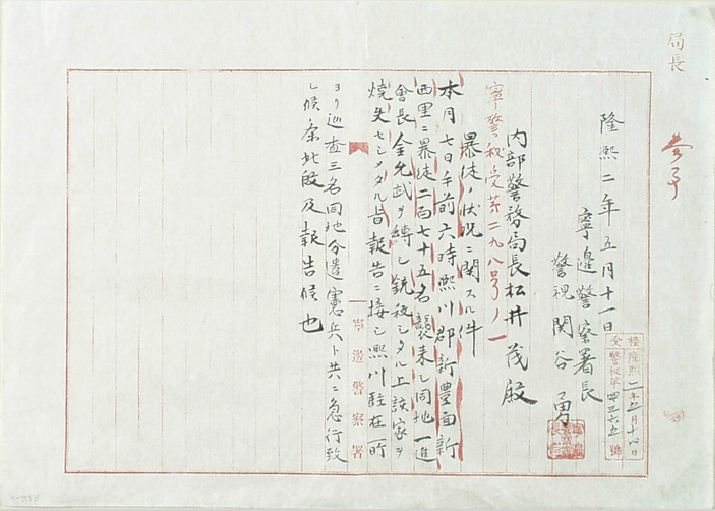 局長
隆熙二年五月十一日
寧邊警察署長
警視 関谷勇
接隆熙二年五月十八日
受警秘第四三六五號
内部警務局長松井茂殿
寧警秘受第二九八号ノ一
暴徒ノ状况ニ関スル件
本月七日午前六時熙川郡新豊面新
西里ニ暴徒二百七十五名襲来シ同地一進
會長金允武ヲ縛シ銃殺シタル上該家ヲ
焼失セシメタル旨報告ニ接シ熙川駐在所
ヨリ巡査三名同地分遣憲兵ト共ニ急行致
シ候条此段及報告候也
寧邊警察署